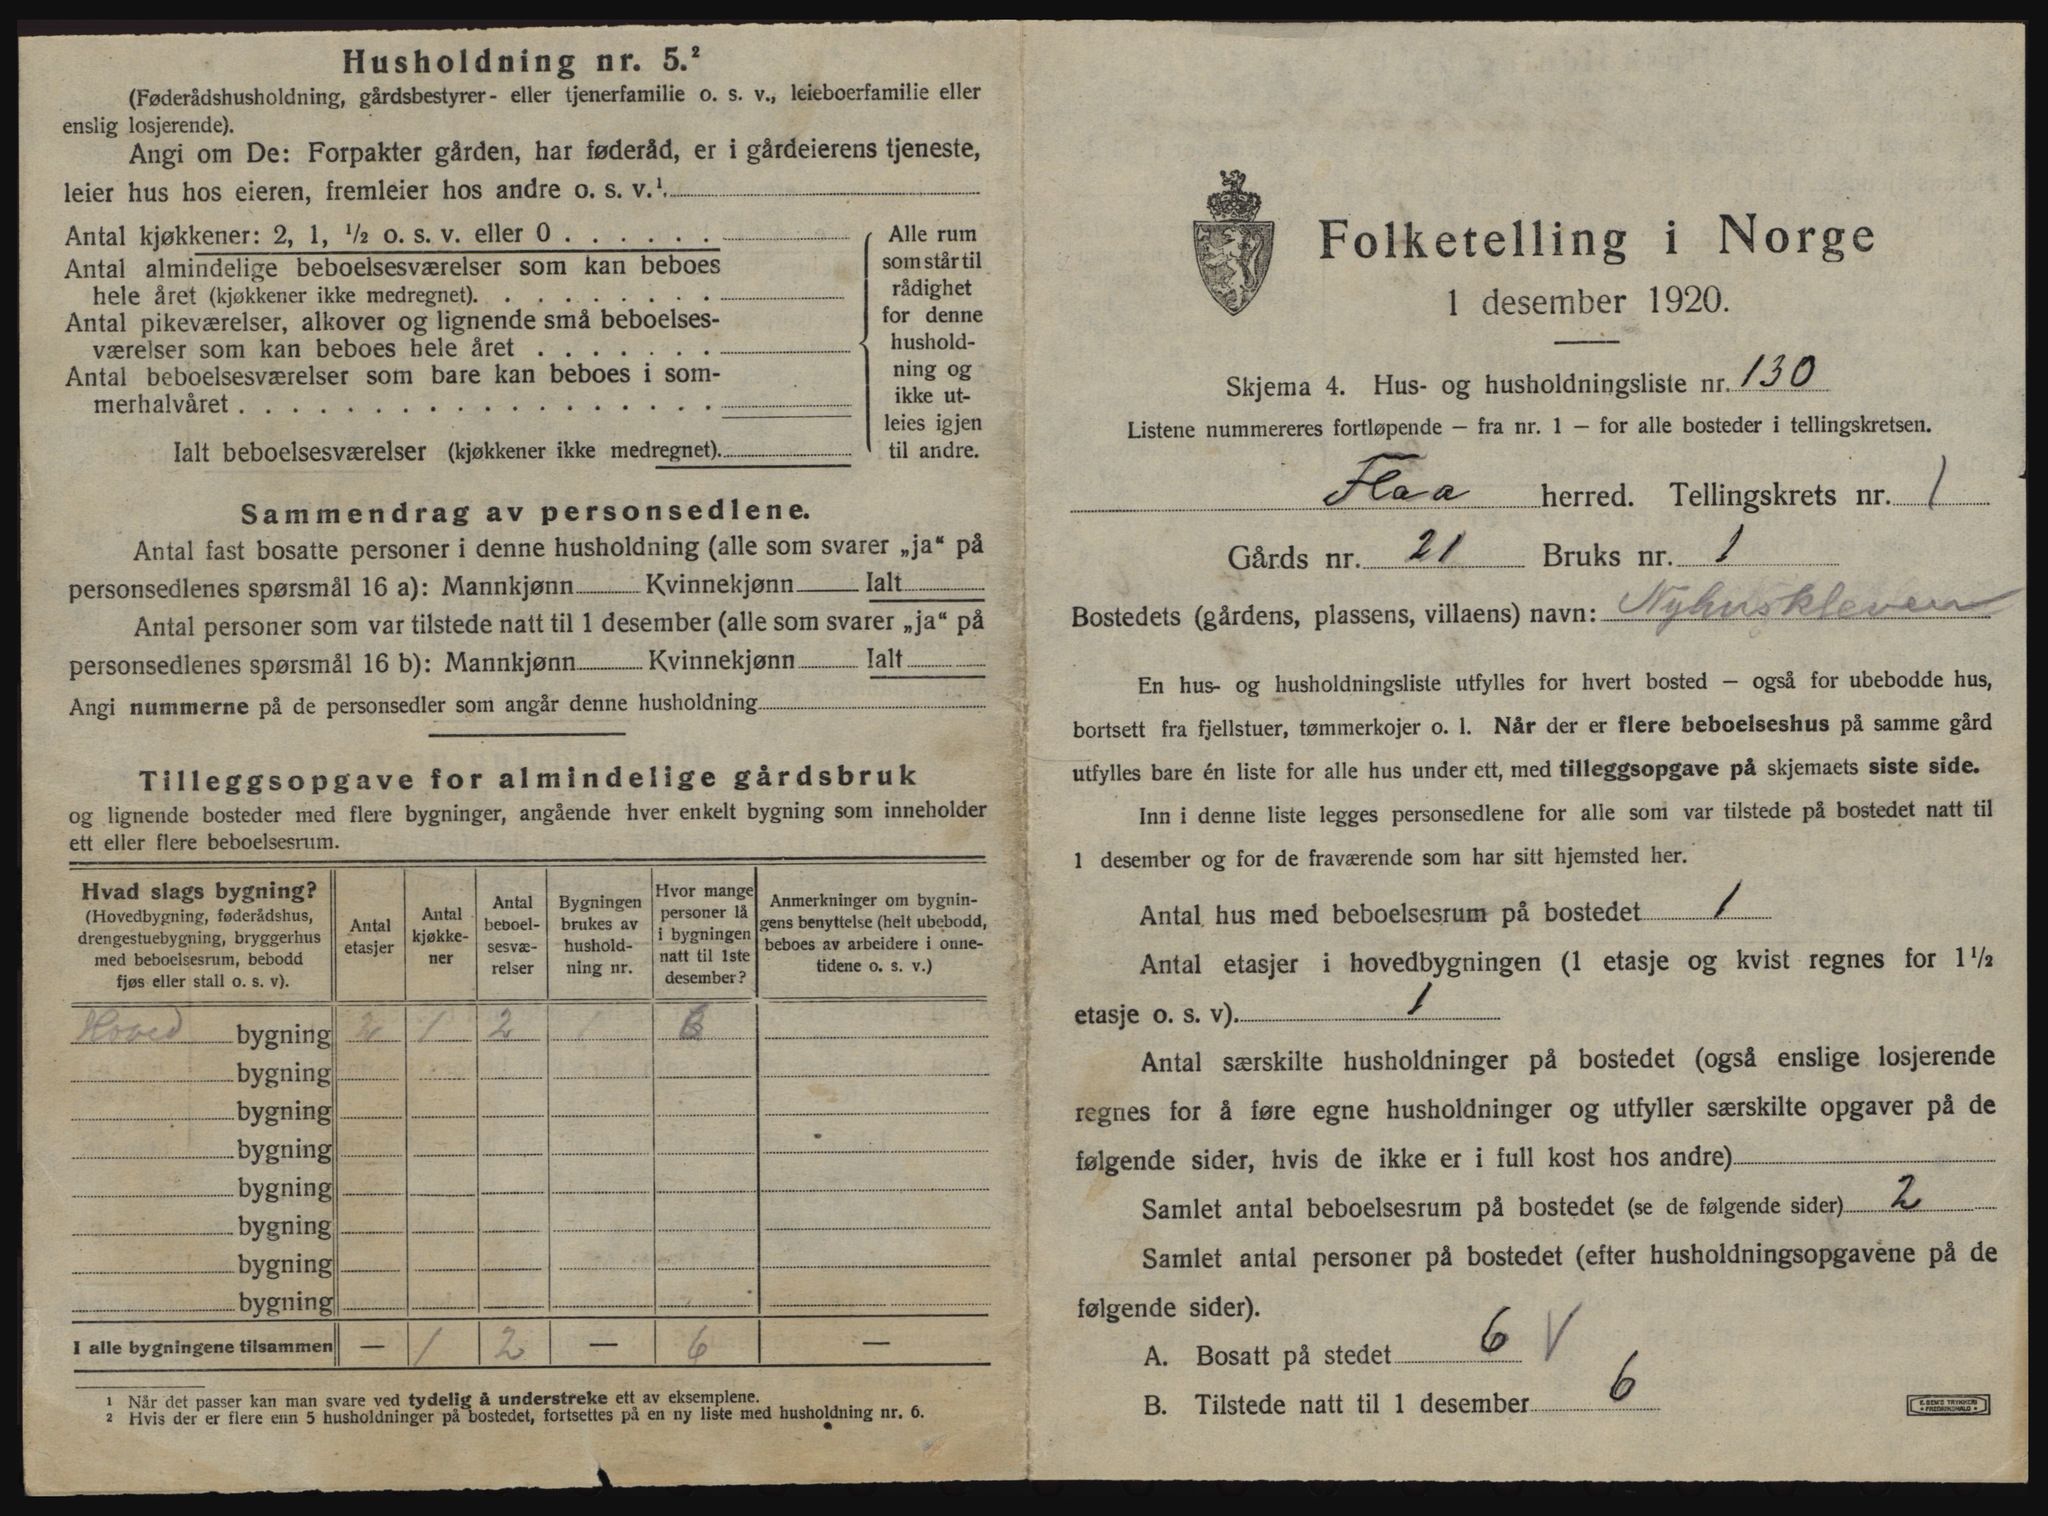 Husholdning nr. 5.²
(Føderådshusholdning, gårdsbestyrer- eller tjenerfamilie o. s. v., leieboerfamilie eller
enslig losjerende).
Angi om De: Forpakter gården, har føderåd, er i gårdeierens tjeneste,
leier hus hos eieren, fremleier hos andre o. s. v.¹.
Antal kjøkkener: 2, 1, ½ o. s. v. eller 0 . . . . . .
Antal almindelige beboelsesværelser som kan beboes
hele året (kjøkkener ikke medregnet). . . . . . . . .
Antal pikeværelser, alkover og lignende små beboelses-
værelser som kan beboes hele året . . . . . . .
Antal beboelsesværelser som bare kan beboes i som-
merhalvåret . . . . . . . . . . . . . . . . . .
Ialt beboelsesværelser (kjøkkener ikke medregnet).
Alle rum
som står til
rådighet
for denne
hushold-
ning og
ikke ut-
leies igjen
til andre.
Sammendrag av personsedlene.
Antal fast bosatte personer i denne husholdning (alle som svarer „ja“ på
personsedlenes spørsmål 16 a): Mannkjønn Kvinnekjønn Ialt
Antal personer som var tilstede natt til 1 desember (alle som svarer „ja“ på
personsedlenes spørsmål 16 b): Mannkjønn Kvinnekjønn Ialt
Angi nummerne på de personsedler som angår denne husholdning
Tilleggsopgave for almindelige gårdsbruk
og lignende bosteder med flere bygninger, angående hver enkelt bygning som inneholder
ett eller flere beboelsesrum.
Hvad slags bygning?
(Hovedbygning, føderådshus,
drengestuebygning, bryggerhus
med beboelsesrum, bebodd
fjøs eller stall o. s. v).
Antal
etasjer
Antal
kjøkke-
ner
Antal
beboel-
sesvæ-
relser
Bygningen
brukes av
hushold-
ning nr.
Hvor mange
personer lå
i bygningen
natt til 1ste
desember?
Anmerkninger om bygnin-
gens benyttelse (helt ubebodd,
beboes av arbeidere i onne-
tidene o. s. v.)
Hoved bygning 2 1 2 1 6
bygning
bygning
bygning
bygning
bygning
bygning
bygning
I alle bygningene tilsammen — 1 2 — 6 —
¹ Når det passer kan man svare ved tydelig å understreke ett av eksemplene.
² Hvis der er flere enn 5 husholdninger på bostedet, fortsettes på en ny liste med husholdning nr. 6.
Folketelling i Norge
1 desember 1920.
Skjema 4. Hus- og husholdningsliste nr. 130
Listene nummereres fortløpende — fra nr. 1 — for alle bosteder i tellingskretsen.
Flaa herred. Tellingskrets nr. 1
Gårds nr. 21 Bruks nr. 1
Bostedets (gårdens, plassens, villaens) navn: Nyhuskleven
En hus- og husholdningsliste utfylles for hvert bosted — også for ubebodde hus,
bortsett fra fjellstuer, tømmerkojer o. l. Når der er flere beboelseshus på samme gård
utfylles bare én liste for alle hus under ett, med tilleggsopgave på skjemaets siste side.
Inn i denne liste legges personsedlene for alle som var tilstede på bostedet natt til
1 desember og for de fraværende som har sitt hjemsted her.
Antal hus med beboelsesrum på bostedet 1
Antal etasjer i hovedbygningen (1 etasje og kvist regnes for 1½
etasje o. s. v). 1
Antal særskilte husholdninger på bostedet (også enslige losjerende
regnes for å føre egne husholdninger og utfyller særskilte opgaver på de
følgende sider, hvis de ikke er i full kost hos andre)
Samlet antal beboelsesrum på bostedet (se de følgende sider) 2
Samlet antal personer på bostedet (efter husholdningsopgavene på de
følgende sider).
A. Bosatt på stedet 6 V
B. Tilstede natt til 1 desember 6
E. SEM'S TRYKKERI
• FREDRIKSHALD •